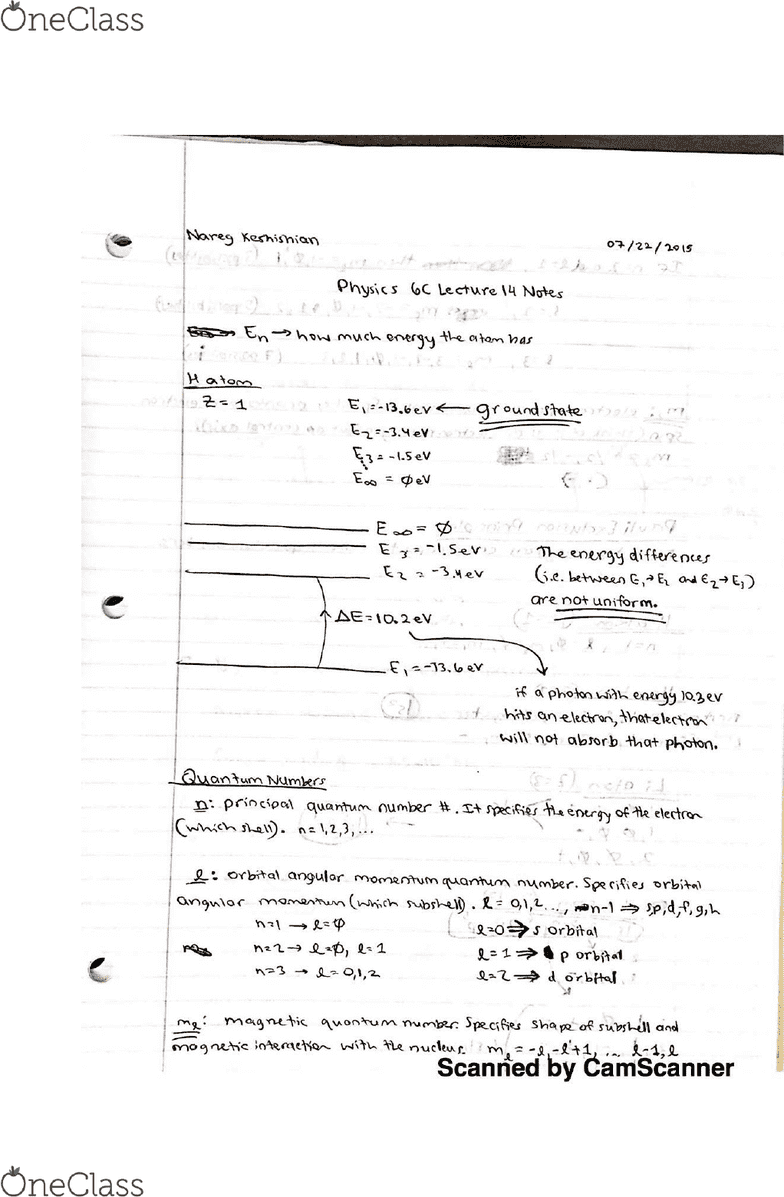 OneClass
Nareg Keshishian
07/22/2015
Physics 6C Lecture 14 Notes
En → how much energy the atom has
H atom
Z = 1
E₁ = -13.6 eV ← ground state
E₂ = -3.4 eV
E₃ = -1.5 eV
E∞ = ∅ eV
E∞ = ∅
E₃ = -1.5 eV
E₂ = -3.4 eV
The energy differences
(i.e. between E₁→E₂ and E₂→E₃)
are not uniform.
ΔE = 10.2 eV
E₁ = -13.6 eV
if a photon with energy 10.3 eV
hits an electron, that electron
will not absorb that photon.
Quantum Numbers
n: principal quantum number #. It specifies the energy of the electron
(which shell). n = 1,2,3,...
ℓ: orbital angular momentum quantum number. Specifies orbital
angular momentum (which subshell). ℓ = 0,1,2..., n-1 ⇒ s,p,d,f,g,h
n=1 → ℓ=∅ ℓ=0 ⇒ s orbital
n=2 → ℓ=∅, ℓ=1 ℓ=1 ⇒ p orbital
n=3 → ℓ=0,1,2 ℓ=2 ⇒ d orbital
mℓ: magnetic quantum number. Specifies shape of subshell and
magnetic interaction with the nucleus. mℓ = -ℓ, -ℓ+1, ... ℓ-1, ℓ
Scanned by CamScanner
OneClass